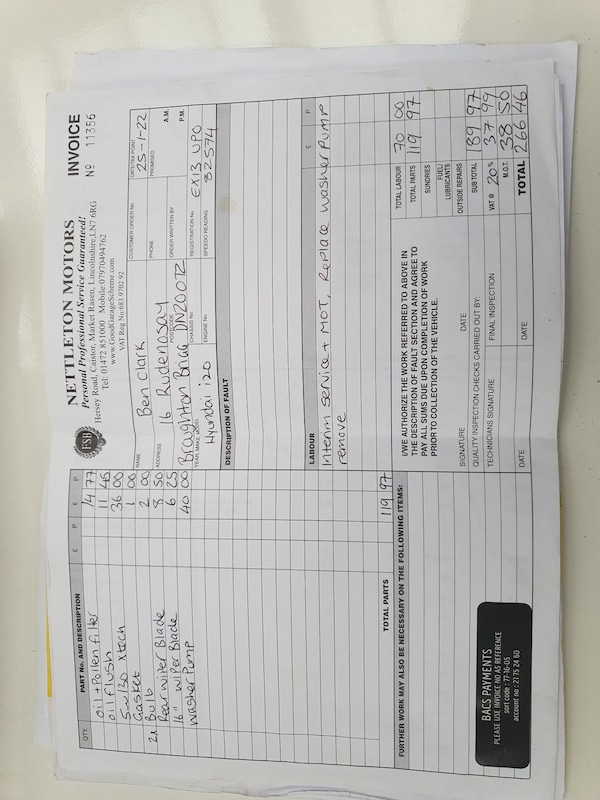 NETTLETON MOTORS
Personal Professional Service Guaranteed!
Hersey Road, Caistor, Market Rasen, Lincolnshire, LN7 6RG
Tel: 01472 851000 Mobile:07970494762
www.GoodGarageScheme.com
VAT Reg No:683 9702 92
FSB
INVOICE
No 11356
QTY. PART No. AND DESCRIPTION £ P £ P
oil + Pollen filter 14 77
oil flush 11 45
5w/30 xtech 36 00
Gasket 1 00
2x Bulb 2 00
Rear wiper Blade 8 50
16" wiper Blade 6 25
washer Pump 40 00
TOTAL PARTS 119 97
FURTHER WORK MAY ALSO BE NECESSARY ON THE FOLLOWING ITEMS:
BACS PAYMENTS
PLEASE USE INVOICE NO AS REFERENCE
sort code : 77-16-05
account no : 21 75 24 60
NAME Ben Clark
CUSTOMER ORDER No.
DATE/TAX POINT 25-1-22
ADDRESS 16
PHONE
PROMISED A.M.
P.M.
POSTCODE DN200TZ
ORDER WRITTEN BY
YEAR, MAKE, MODEL Hyundai i20
CHASSIS No.
REGISTRATION No. EX13 UPO
ENGINE No.
SPEEDO READING 82574
DESCRIPTION OF FAULT
LABOUR £ P
Interim service + MOT, Replace washer pump
remove
I/WE AUTHORIZE THE WORK REFERRED TO ABOVE IN
THE DESCRIPTION OF FAULT SECTION AND AGREE TO
PAY ALL SUMS DUE UPON COMPLETION OF WORK
PRIOR TO COLLECTION OF THE VEHICLE.
SIGNATURE DATE
QUALITY INSPECTION CHECKS CARRIED OUT BY:
TECHNICIANS SIGNATURE FINAL INSPECTION
DATE DATE
TOTAL LABOUR 70 00
TOTAL PARTS 119 97
SUNDRIES
FUEL/
LUBRICANTS
OUTSIDE REPAIRS
SUB TOTAL 189 97
VAT @ 20% 37 99
M.O.T. 38 50
TOTAL 266 46